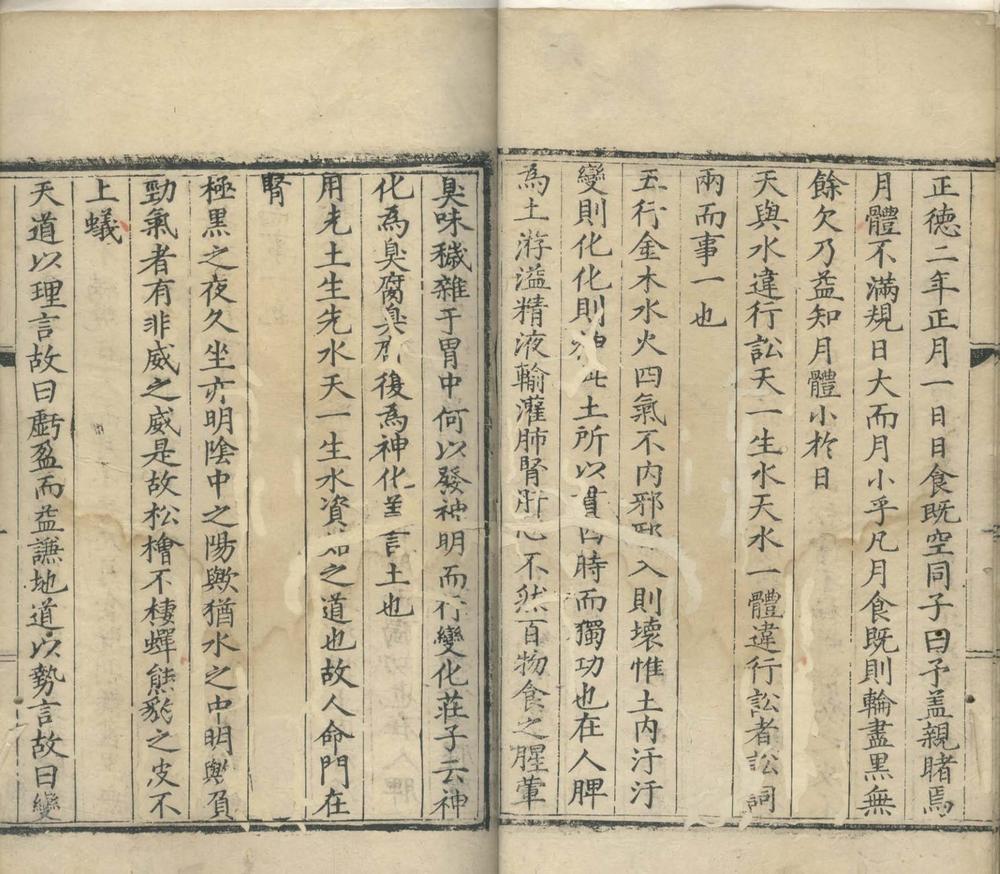 正德二年正月一日日食既空同子曰予盖親睹焉
月體不滿規日大而月小乎凡月食既則輪盡黑無
餘欠乃益知月體小於日
天與水違行訟天一生水天水一體違行訟者訟詞
兩而事一也
五行金木水火四氣不內邪邪入則壞惟土內汙汙
變則化化則神此土所以貫四時而獨功也在人脾
為土游溢精液輸灌肺腎肝心不然百物食之腥葷
臭味穢雜于胃中何以發神明而行變化莊子云神
化為臭腐臭腐復為神化蓋言土也
用先土生先水天一生水資始之道也故人命門在
腎
極黑之夜久坐亦明陰中之陽歟猶水之中明歟負
勁氣者有非威之威是故松檜不棲蟬熊豹之皮不
上蟻
天道以理言故曰虧盈而益謙地道以勢言故曰變